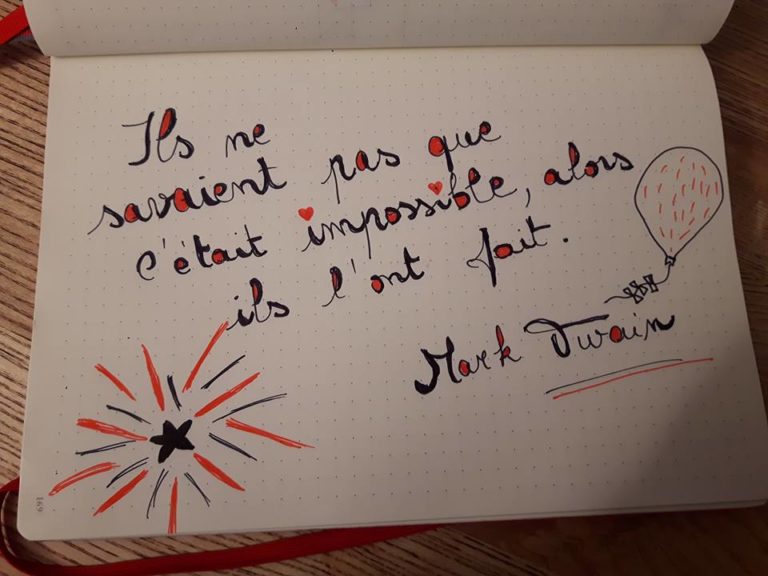 Ils ne
savaient pas que
c'était impossible, alors
ils l'ont fait.
Mark Twain
169